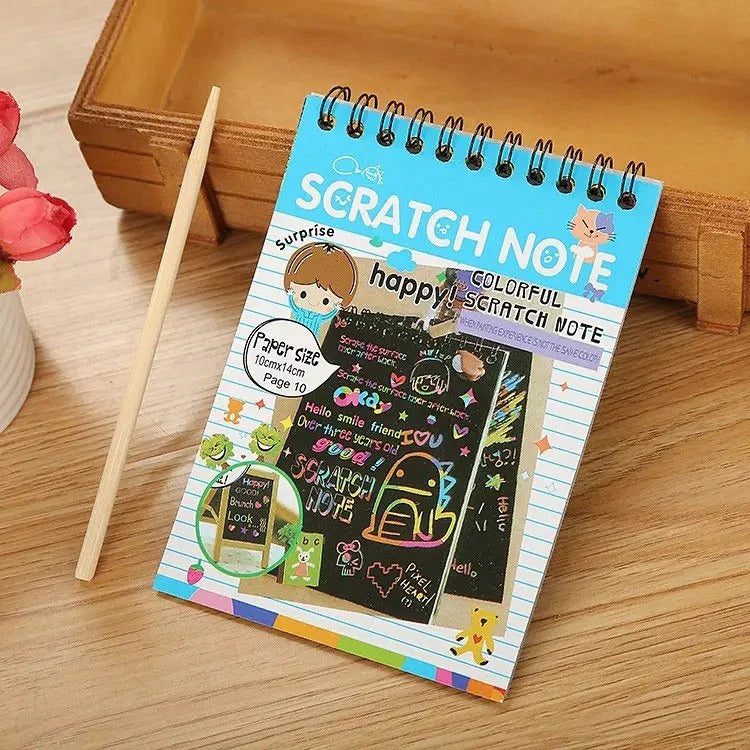 SCRATCH NOTE
Surprise
happy!
COLORFUL
SCRATCH NOTE
WHEN PAINTING EXPERIENCE IS NOT THE SAME COLOR
Paper size
10cmx14cm
Page 10
Scrape the surface
layer after back.
Scrape the surface
layer after back.
Okay
Hello smile friend
Over three years old
I U
good!
SCRATCH
NOTE
Hello
Hello
Happy!
GOOD!
Brunch
Look...
PIXEL
HEART
(!)